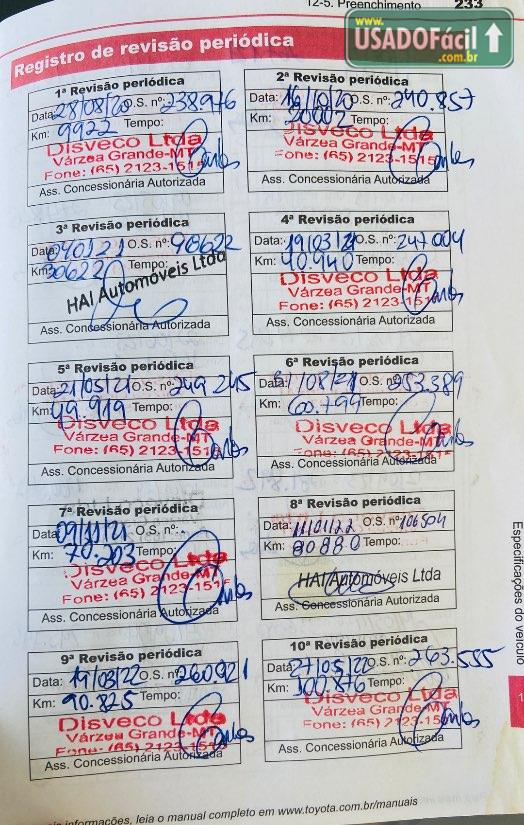 12-5. Preenchimento 233
www.
USADOFácil
.com.br
Registro de revisão periódica
1ª Revisão periódica
Data: 28/08/20 O.S. nº: 238976
Km: 9922 Tempo:
Disveco Ltda
Várzea Grande-MT
Fone: (65) 2123-1515
Ass. Concessionária Autorizada
2ª Revisão periódica
Data: 16/10/20 O.S. nº: 240.857
Km: 20002 Tempo:
Disveco Ltda
Várzea Grande-MT
Fone: (65) 2123-1515
Ass. Concessionária Autorizada
3ª Revisão periódica
Data: O.S. nº: 98622
Km: 30622 Tempo:
HAI Automóveis Ltda
Ass. Concessionária Autorizada
4ª Revisão periódica
Data: 19/03/21 O.S. nº: 247004
Km: 40.940 Tempo:
Disveco Ltda
Várzea Grande-MT
Fone: (65) 2123-1515
Ass. Concessionária Autorizada
5ª Revisão periódica
Data: 21/05/21 O.S. nº: 249.245
Km: 49.919 Tempo:
Disveco Ltda
Várzea Grande-MT
Fone: (65) 2123-1515
Ass. Concessionária Autorizada
6ª Revisão periódica
Data: /08/21 O.S. nº: 253.389
Km: 60.799 Tempo:
Disveco Ltda
Várzea Grande-MT
Fone: (65) 2123-151
Ass. Concessionária Autorizada
7ª Revisão periódica
Data: 09/11/21 O.S. nº:
Km: 70.203 Tempo:
Disveco Ltda
Várzea Grande-MT
Fone: (65) 2123-1515
Ass. Concessionária Autorizada
8ª Revisão periódica
Data: 11/01/22 O.S. nº: 106504
Km: 80880 Tempo:
HAI Automóveis Ltda
Ass. Concessionária Autorizada
9ª Revisão periódica
Data: 19/03/22 O.S. nº: 260921
Km: 90.825 Tempo:
Disveco Ltda
Várzea Grande-MT
Fone: (65) 2123-1515
Ass. Concessionária Autorizada
10ª Revisão periódica
Data: 27/05/22 O.S. nº: 263.555
Km: 100.876 Tempo:
Disveco Ltda
Várzea Grande-MT
Fone: (65) 2123-151
Ass. Concessionária Autorizada
Especificações do veículo
1
is informações, leia o manual completo em www.toyota.com.br/manuais